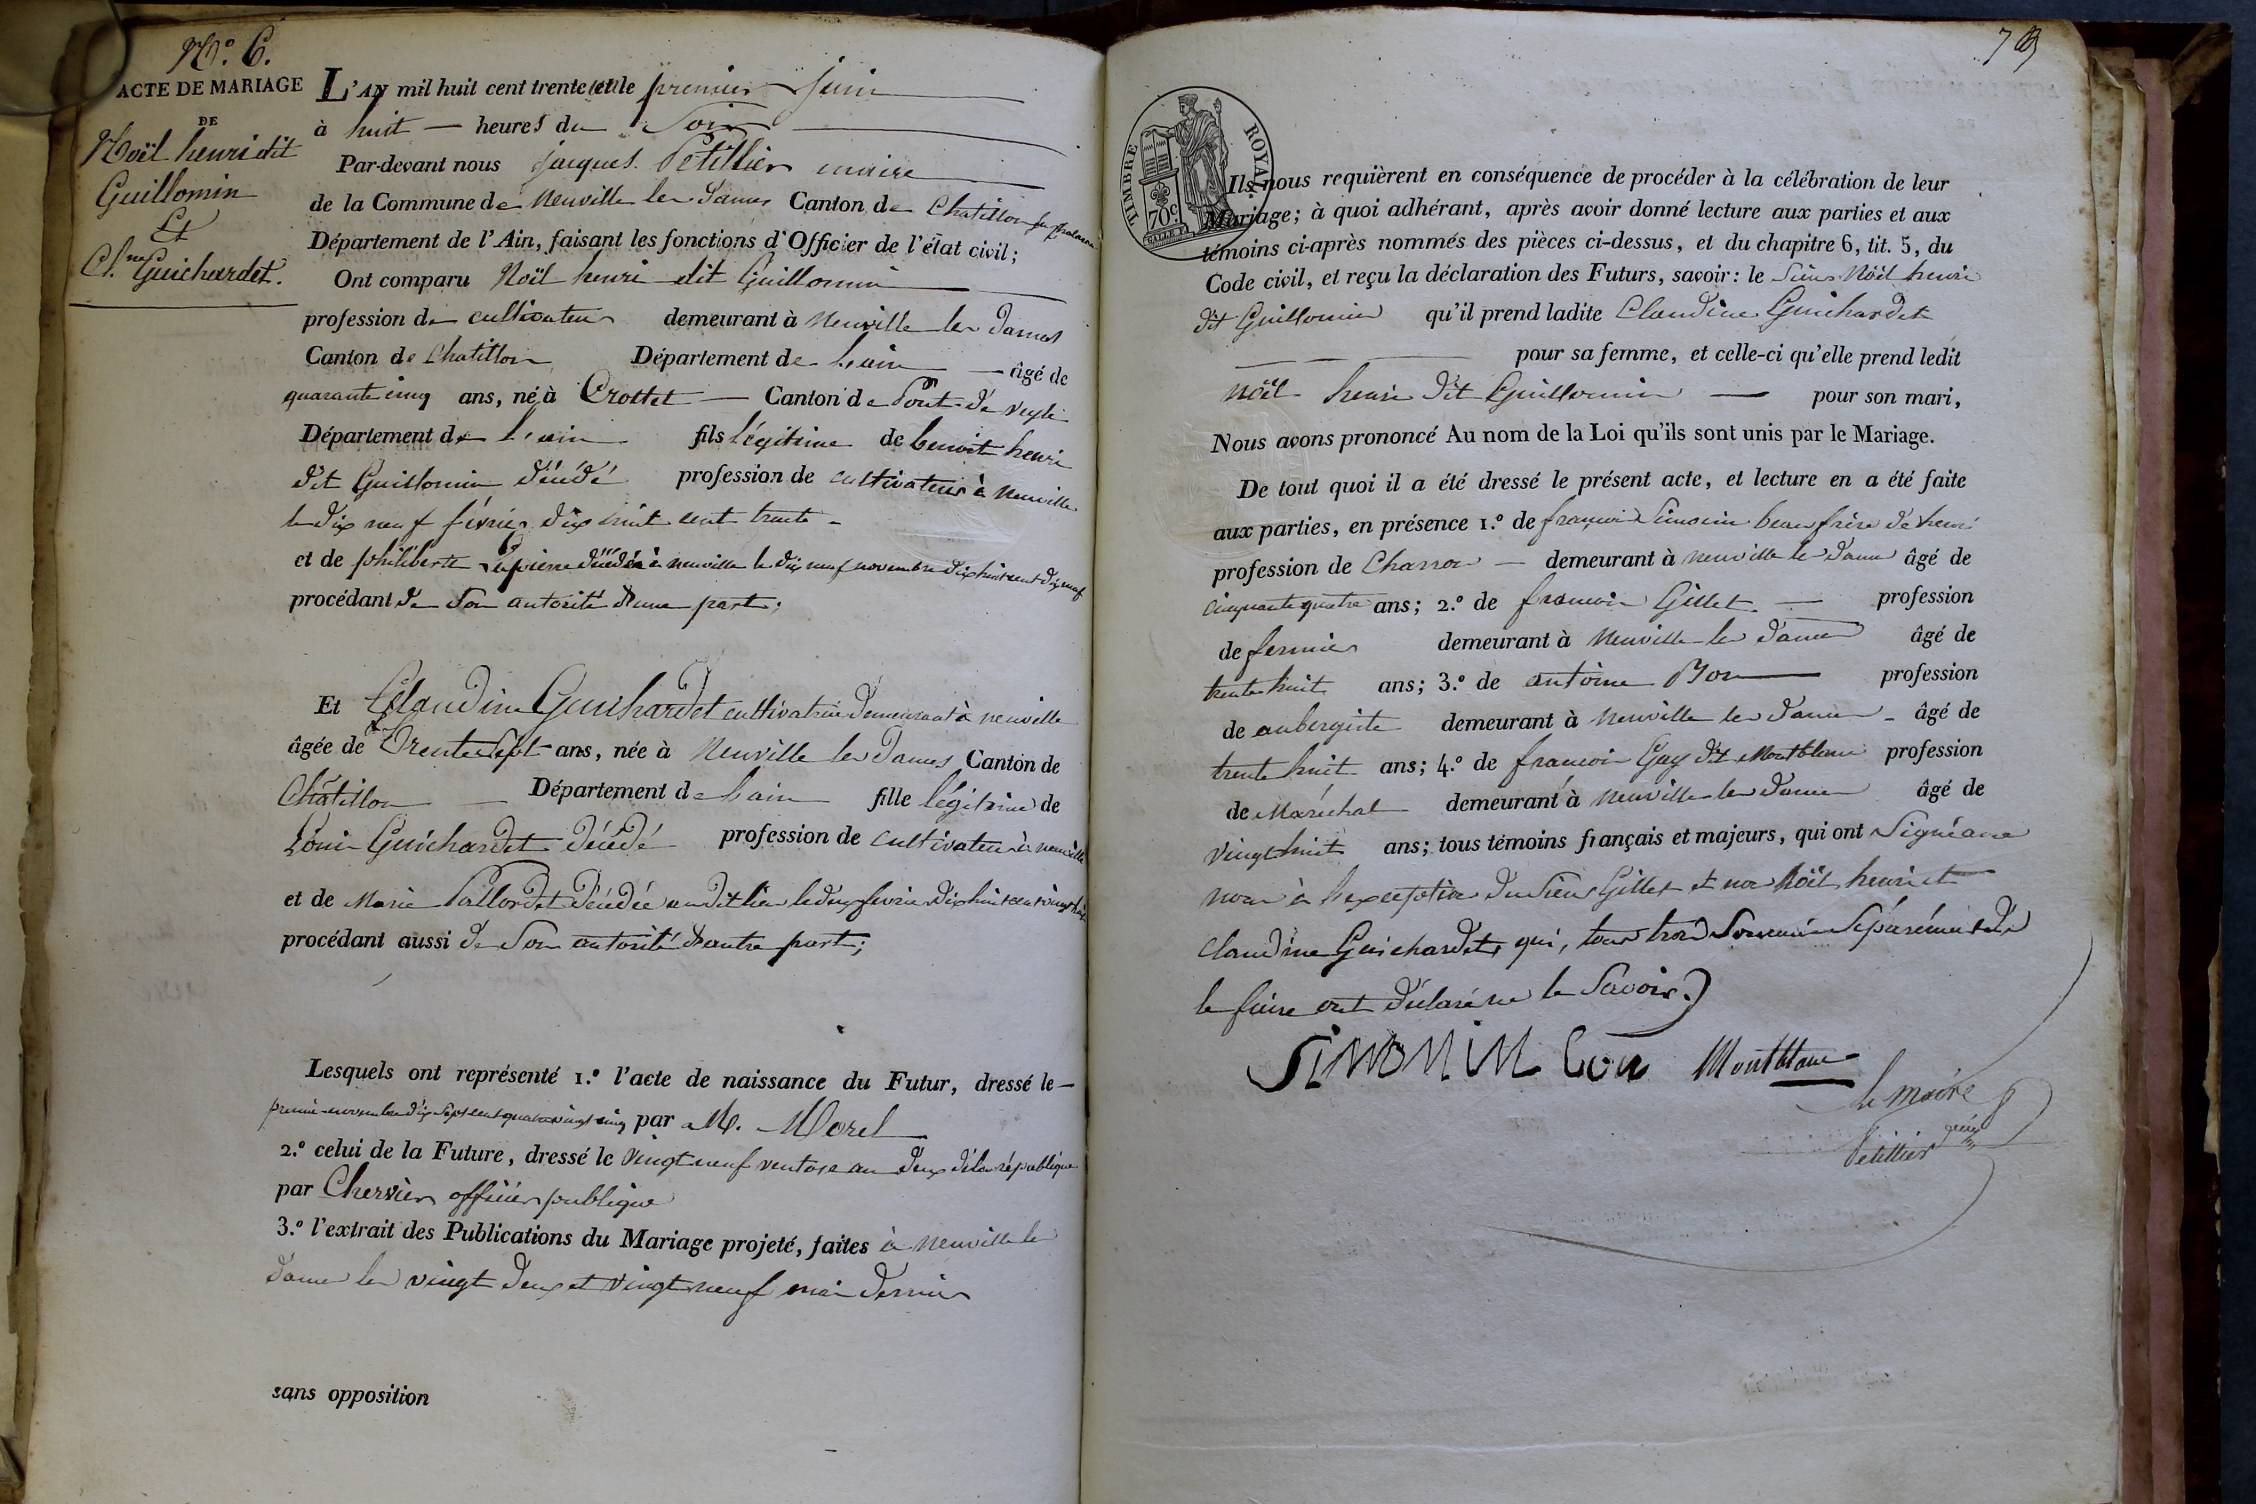 N.o 6.
ACTE DE MARIAGE
DE
Noël henri dit
Guillomin
Et
Cl.ne Guichardet.
L'AN mil huit cent trente et le premier juin
à huit heures du Soir
Par-devant nous jacques Petillier maire
de la Commune de Neuville les Dames Canton de Chatillon
Département de l'Ain, faisant les fonctions d'Officier de l'état civil;
Ont comparu Noël henri dit Guillomin
profession de cultivateur demeurant à Neuville les Dames
Canton de Chatillon Département de l'ain âgé de
quarante cinq ans, né à Crottet Canton de Pont de veyle
Département de l'ain fils légitime de benoit henri
dit Guillomin décédé profession de cultivateur à Neuville
le dix neuf février dix huit cent trente
et de philiberte décédée à neuville le dix neuf novembre dix huit cent dix neuf
procédant de Son autorité d'une part;
Et Claudine Guichardet cultivatrice demeurant à neuville
âgée de Trente Sept ans, née à Neuville les Dames Canton de
Châtillon Département de l'ain fille légitime de
Louis Guichardet décédé profession de cultivateur à neuville
et de Marie Pallordet décédée au dit lieu le février dix huit cent vingt
procédant aussi de Son autorité d'autre part;
Lesquels ont représenté 1.o l'acte de naissance du Futur, dressé le
premier novembre dix Sept cent quatre vingt cinq par M. Morel
2.o celui de la Future, dressé le vingt neuf ventose an deux de la république
par Chervier officier publique
3.o l'extrait des Publications du Mariage projeté, faites à Neuville les
dames les vingt deux et vingt neuf mai dernier
sans opposition
TIMBRE ROYAL
70c.
Ils nous requièrent en conséquence de procéder à la célébration de leur
Mariage; à quoi adhérant, après avoir donné lecture aux parties et aux
témoins ci-après nommés des pièces ci-dessus, et du chapitre 6, tit. 5, du
Code civil, et reçu la déclaration des Futurs, savoir: le Sieur Noël henri
dit Guillomin qu'il prend ladite Claudine Guichardet
pour sa femme, et celle-ci qu'elle prend ledit
Noël henri dit Guillomin pour son mari,
Nous avons prononcé Au nom de la Loi qu'ils sont unis par le Mariage.
De tout quoi il a été dressé le présent acte, et lecture en a été faite
aux parties, en présence 1.o de françois Simonin beau frère de henri
profession de Charron demeurant à neuville les Dames âgé de
cinquante quatre ans; 2.o de françois Gillet profession
de fermier demeurant à Neuville les dames âgé de
trente huit ans; 3.o de antoine Bon profession
de aubergiste demeurant à Neuville les dames âgé de
trente huit ans; 4.o de françois Gay dit Montblanc profession
de Maréchal demeurant à Neuville les dames âgé de
vingt huit ans; tous témoins français et majeurs, qui ont Signé avec
nous à l'exception du Sieur Gillet et non Noël henri et
Claudine Guichardet, qui, tous trois Sommés Séparément de
le faire ont déclaré ne le Savoir.
SIMONIN bon Montblanc
le maire
Petillier